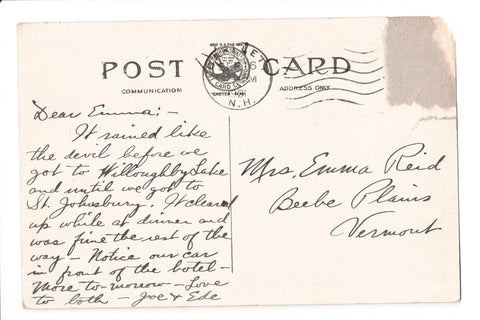 POST CARD
COMMUNICATION
ADDRESS ONLY
N.H.
Dear Emma:-
It rained like
the devil before we
got to Willoughby Lake
and until we got to
St. Johnsbury. It cleared
up while at dinner and
was fine the rest of the
way - Notice our car
in front of the hotel -
More to-morrow - Love
to both - Joe & Ede
Mrs. Emma Reid
Beebe Plains
Vermont